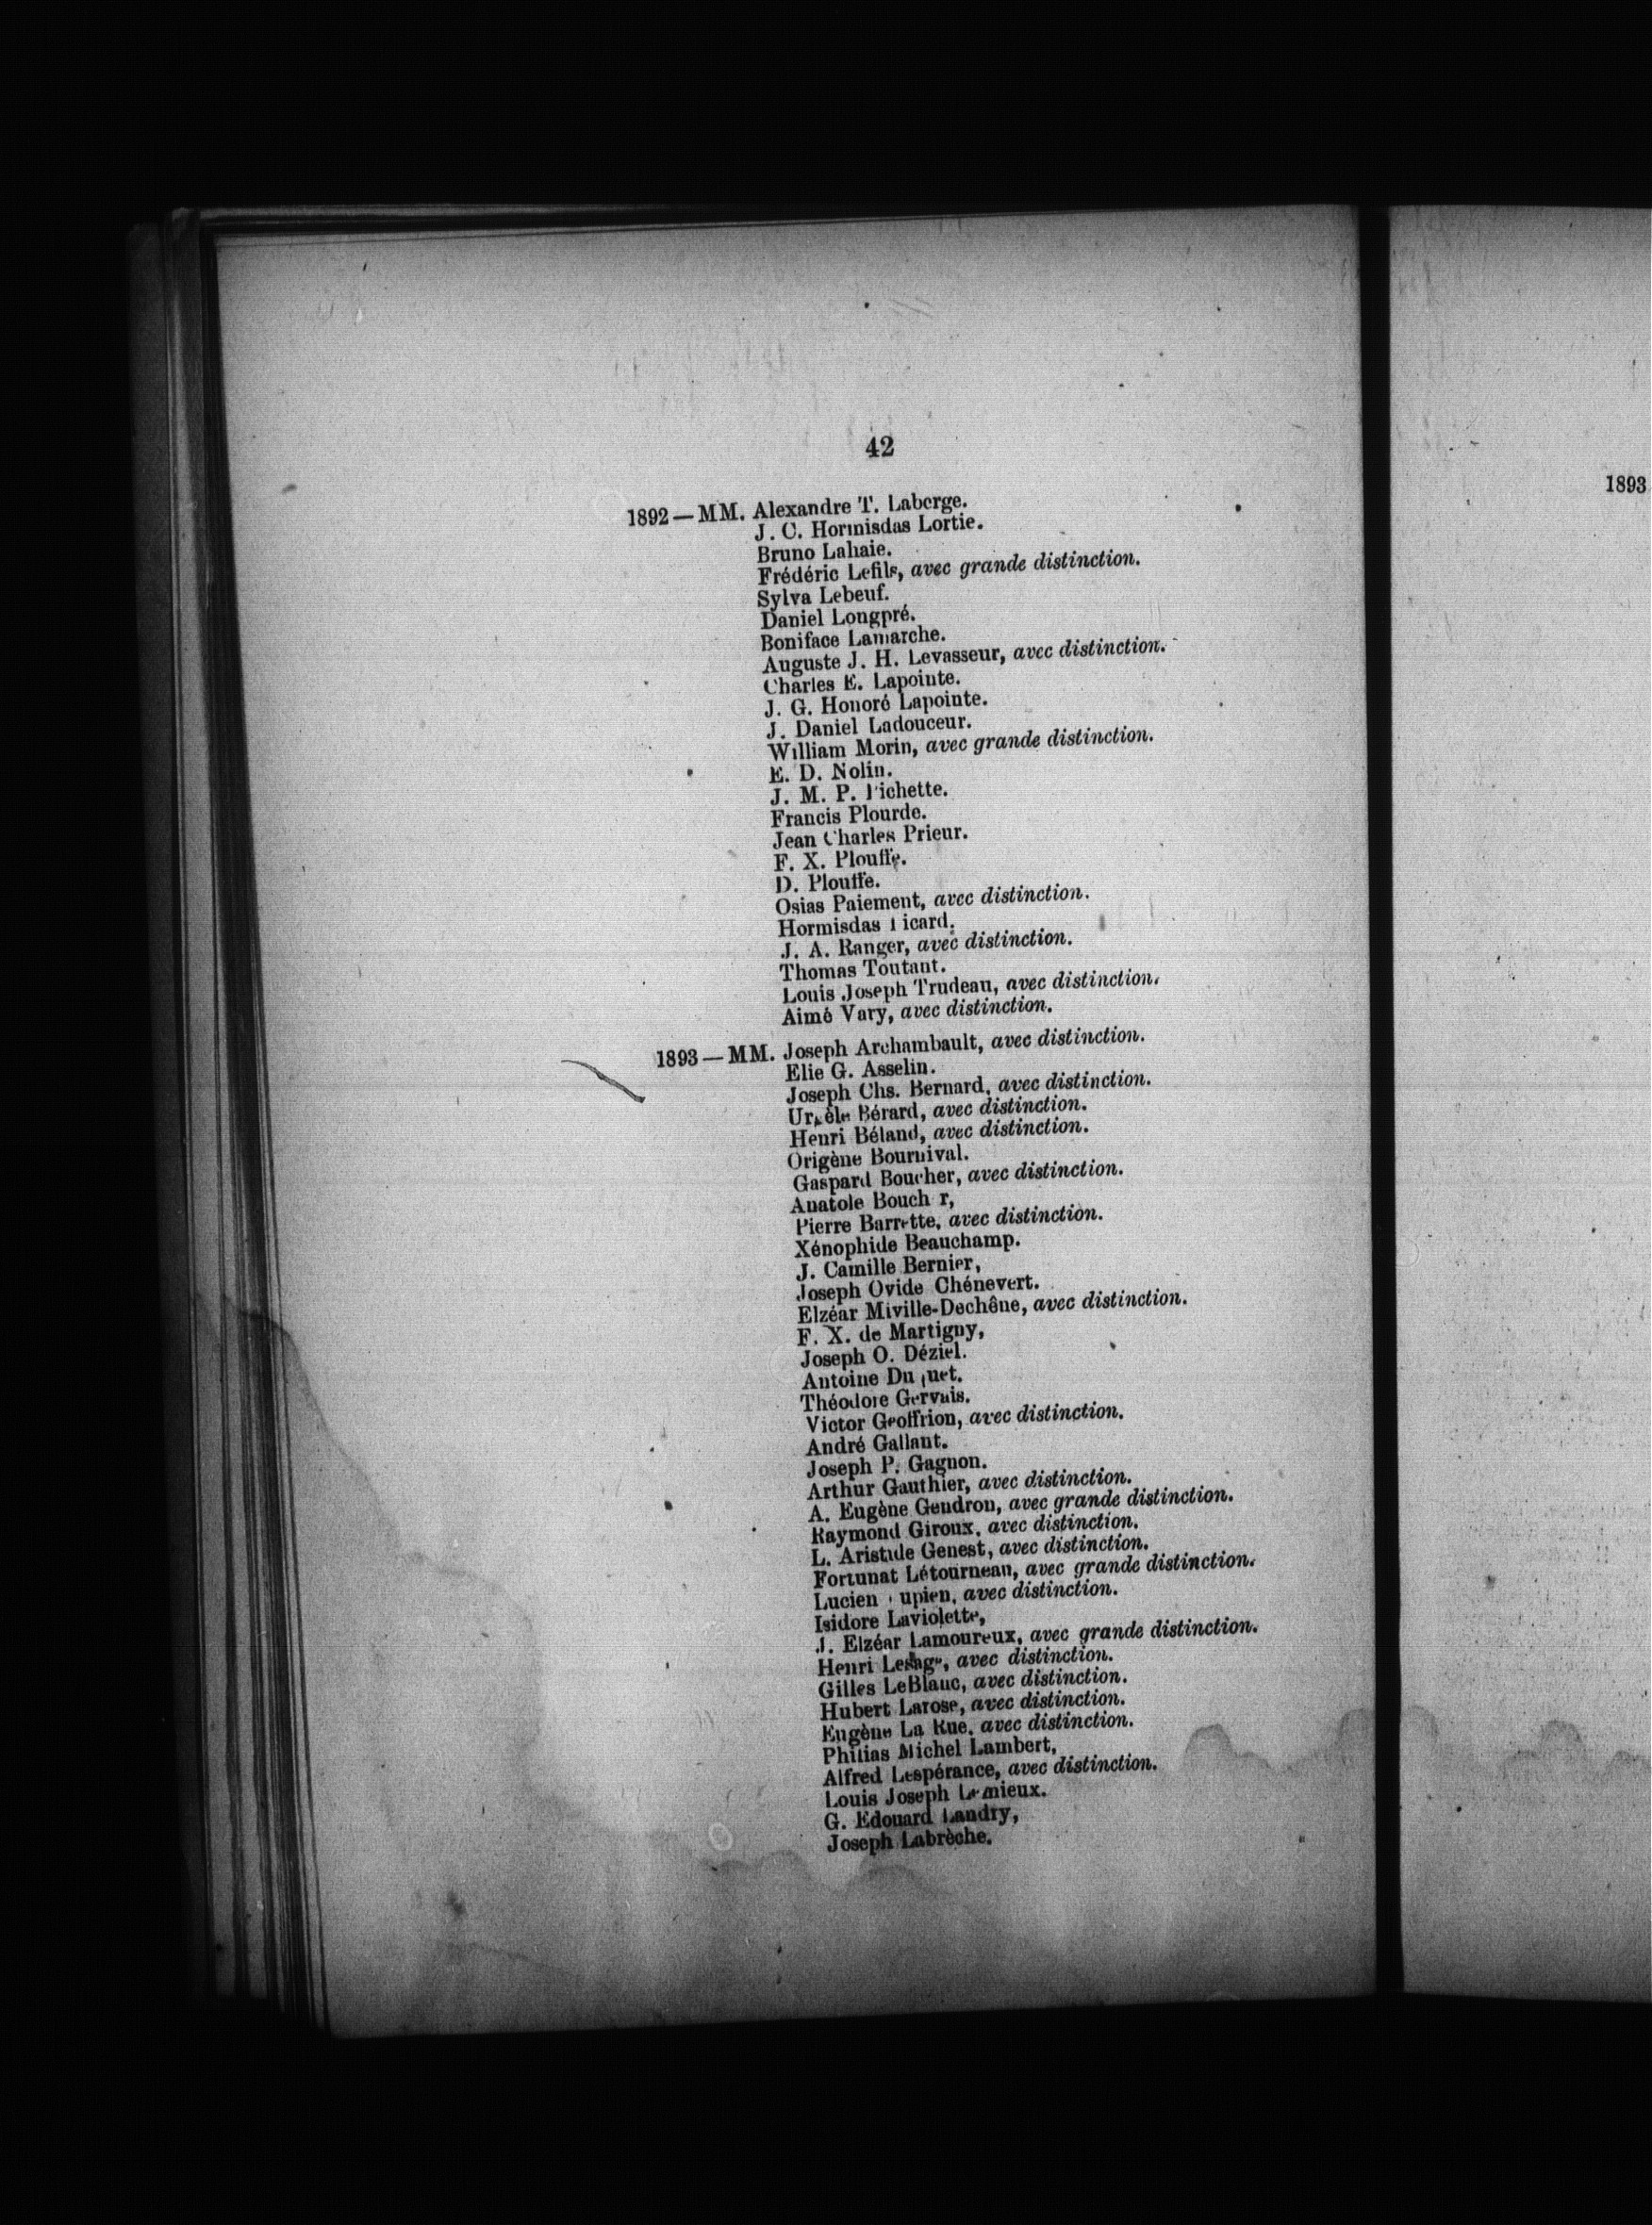 42
1892—MM. Alexandre T. Laberge.
J. C. Hormisdas Lortie.
Bruno Lahaie.
Frédéric Lefils, avec grande distinction.
Sylva Lebeuf.
Daniel Longpré.
Boniface Lamarche.
Auguste J. H. Levasseur, avec distinction.
Charles E. Lapointe.
J. G. Honoré Lapointe.
J. Daniel Ladouceur.
William Morin, avec grande distinction.
E. D. Nolin.
J. M. P. Pichette.
Francis Plourde.
Jean Charles Prieur.
F. X. Plouffe.
D. Plouffe.
Osias Paiement, avec distinction.
Hormisdas
J. A. Ranger, avec distinction.
Thomas Toutant.
Louis Joseph Trudeau, avec distinction.
Aimé Vary, avec distinction.
1893—MM. Joseph Archambault, avec distinction.
Elie G. Asselin.
Joseph Chs. Bernard, avec distinction.
Bérard, avec distinction.
Henri Béland, avec distinction.
Origène Bournival.
Gaspard Boucher, avec distinction.
Anatole Bouch r,
Pierre Barrette, avec distinction.
Xénophide Beauchamp.
J. Camille Bernier,
Joseph Ovide Chénevert.
Elzéar Miville-Dechêne, avec distinction.
F. X. de Martigny,
Joseph O. Déziel.
Antoine
Théodore Gervais.
Victor Geoffrion, avec distinction.
André Gallant.
Joseph P. Gagnon.
Arthur Gauthier, avec distinction.
A. Eugène Gendron, avec grande distinction.
Raymond Giroux, avec distinction.
L. Aristide Genest, avec distinction.
Fortunat Létourneau, avec grande distinction.
Lucien upien, avec distinction.
Isidore Laviolette,
J. Elzéar Lamoureux, avec grande distinction.
Henri Lesage, avec distinction.
Gilles LeBlanc, avec distinction.
Hubert Larose, avec distinction.
Eugène La Rue, avec distinction.
Philias Michel Lambert,
Alfred Lespérance, avec distinction.
Louis Joseph Lemieux.
G. Edouard Landry,
Joseph Labrèche.
1893